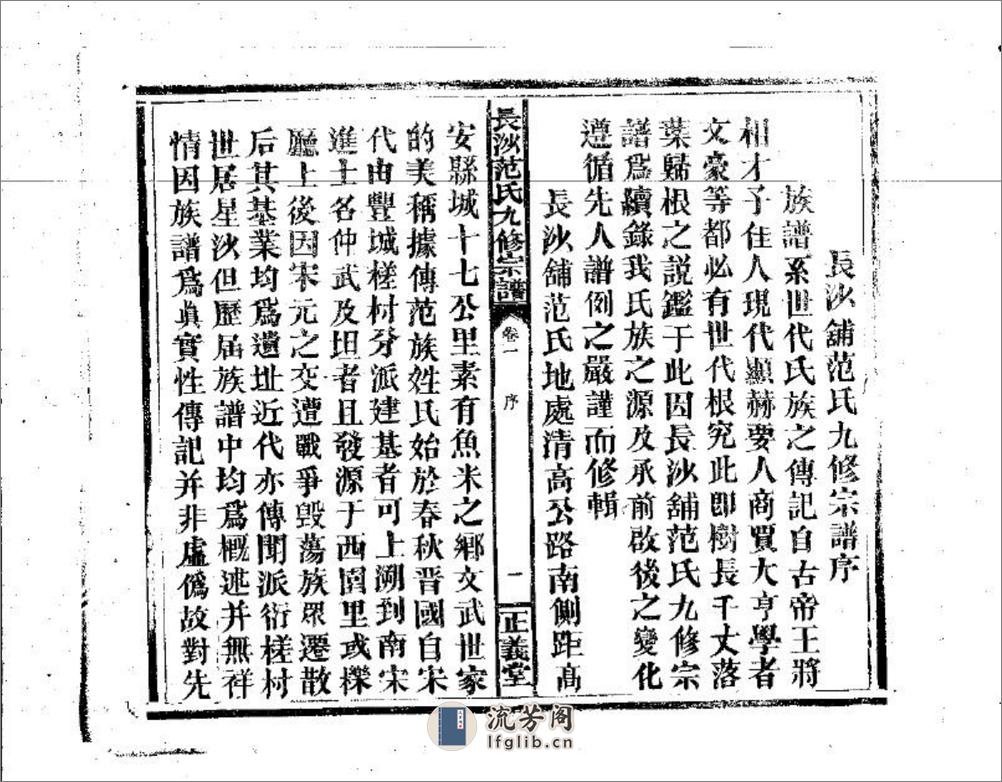 長沙舖范氏九修宗譜序
族譜系世代氏族之傳記自古帝王將
相才子佳人現代顯赫要人商賈大亨學者
文豪等都必有世代根究此即樹長千丈落
葉歸根之説鑑于此因長沙舖范氏九修宗
譜爲續錄我氏族之源及承前啟後之變化
遵循先人譜例之嚴謹而修輯
長沙舖范氏地處清高公路南側距高
長沙范氏九修宗譜
卷一
序
一
正義堂
安縣城十七公里素有魚米之鄉文武世家
的美稱據傳范族姓氏始於春秋晋國自宋
代由豐城槎村分派建基者可上溯到南宋
進士名仲武及坦者且發源于西園里或櫟
廳上後因宋元之交遭戰爭毀蕩族衆遷散
后其基業均爲遺址近代亦傳聞派衍槎村
世居星沙但歷屆族譜中均爲概述并無祥
情因族譜爲眞實性傳記并非虛僞故對先
流芳阁
lfglib.cn